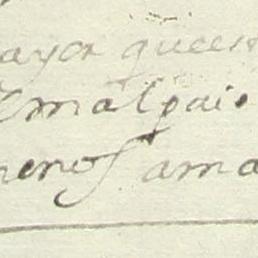 ayor queest
malpais
menos ama